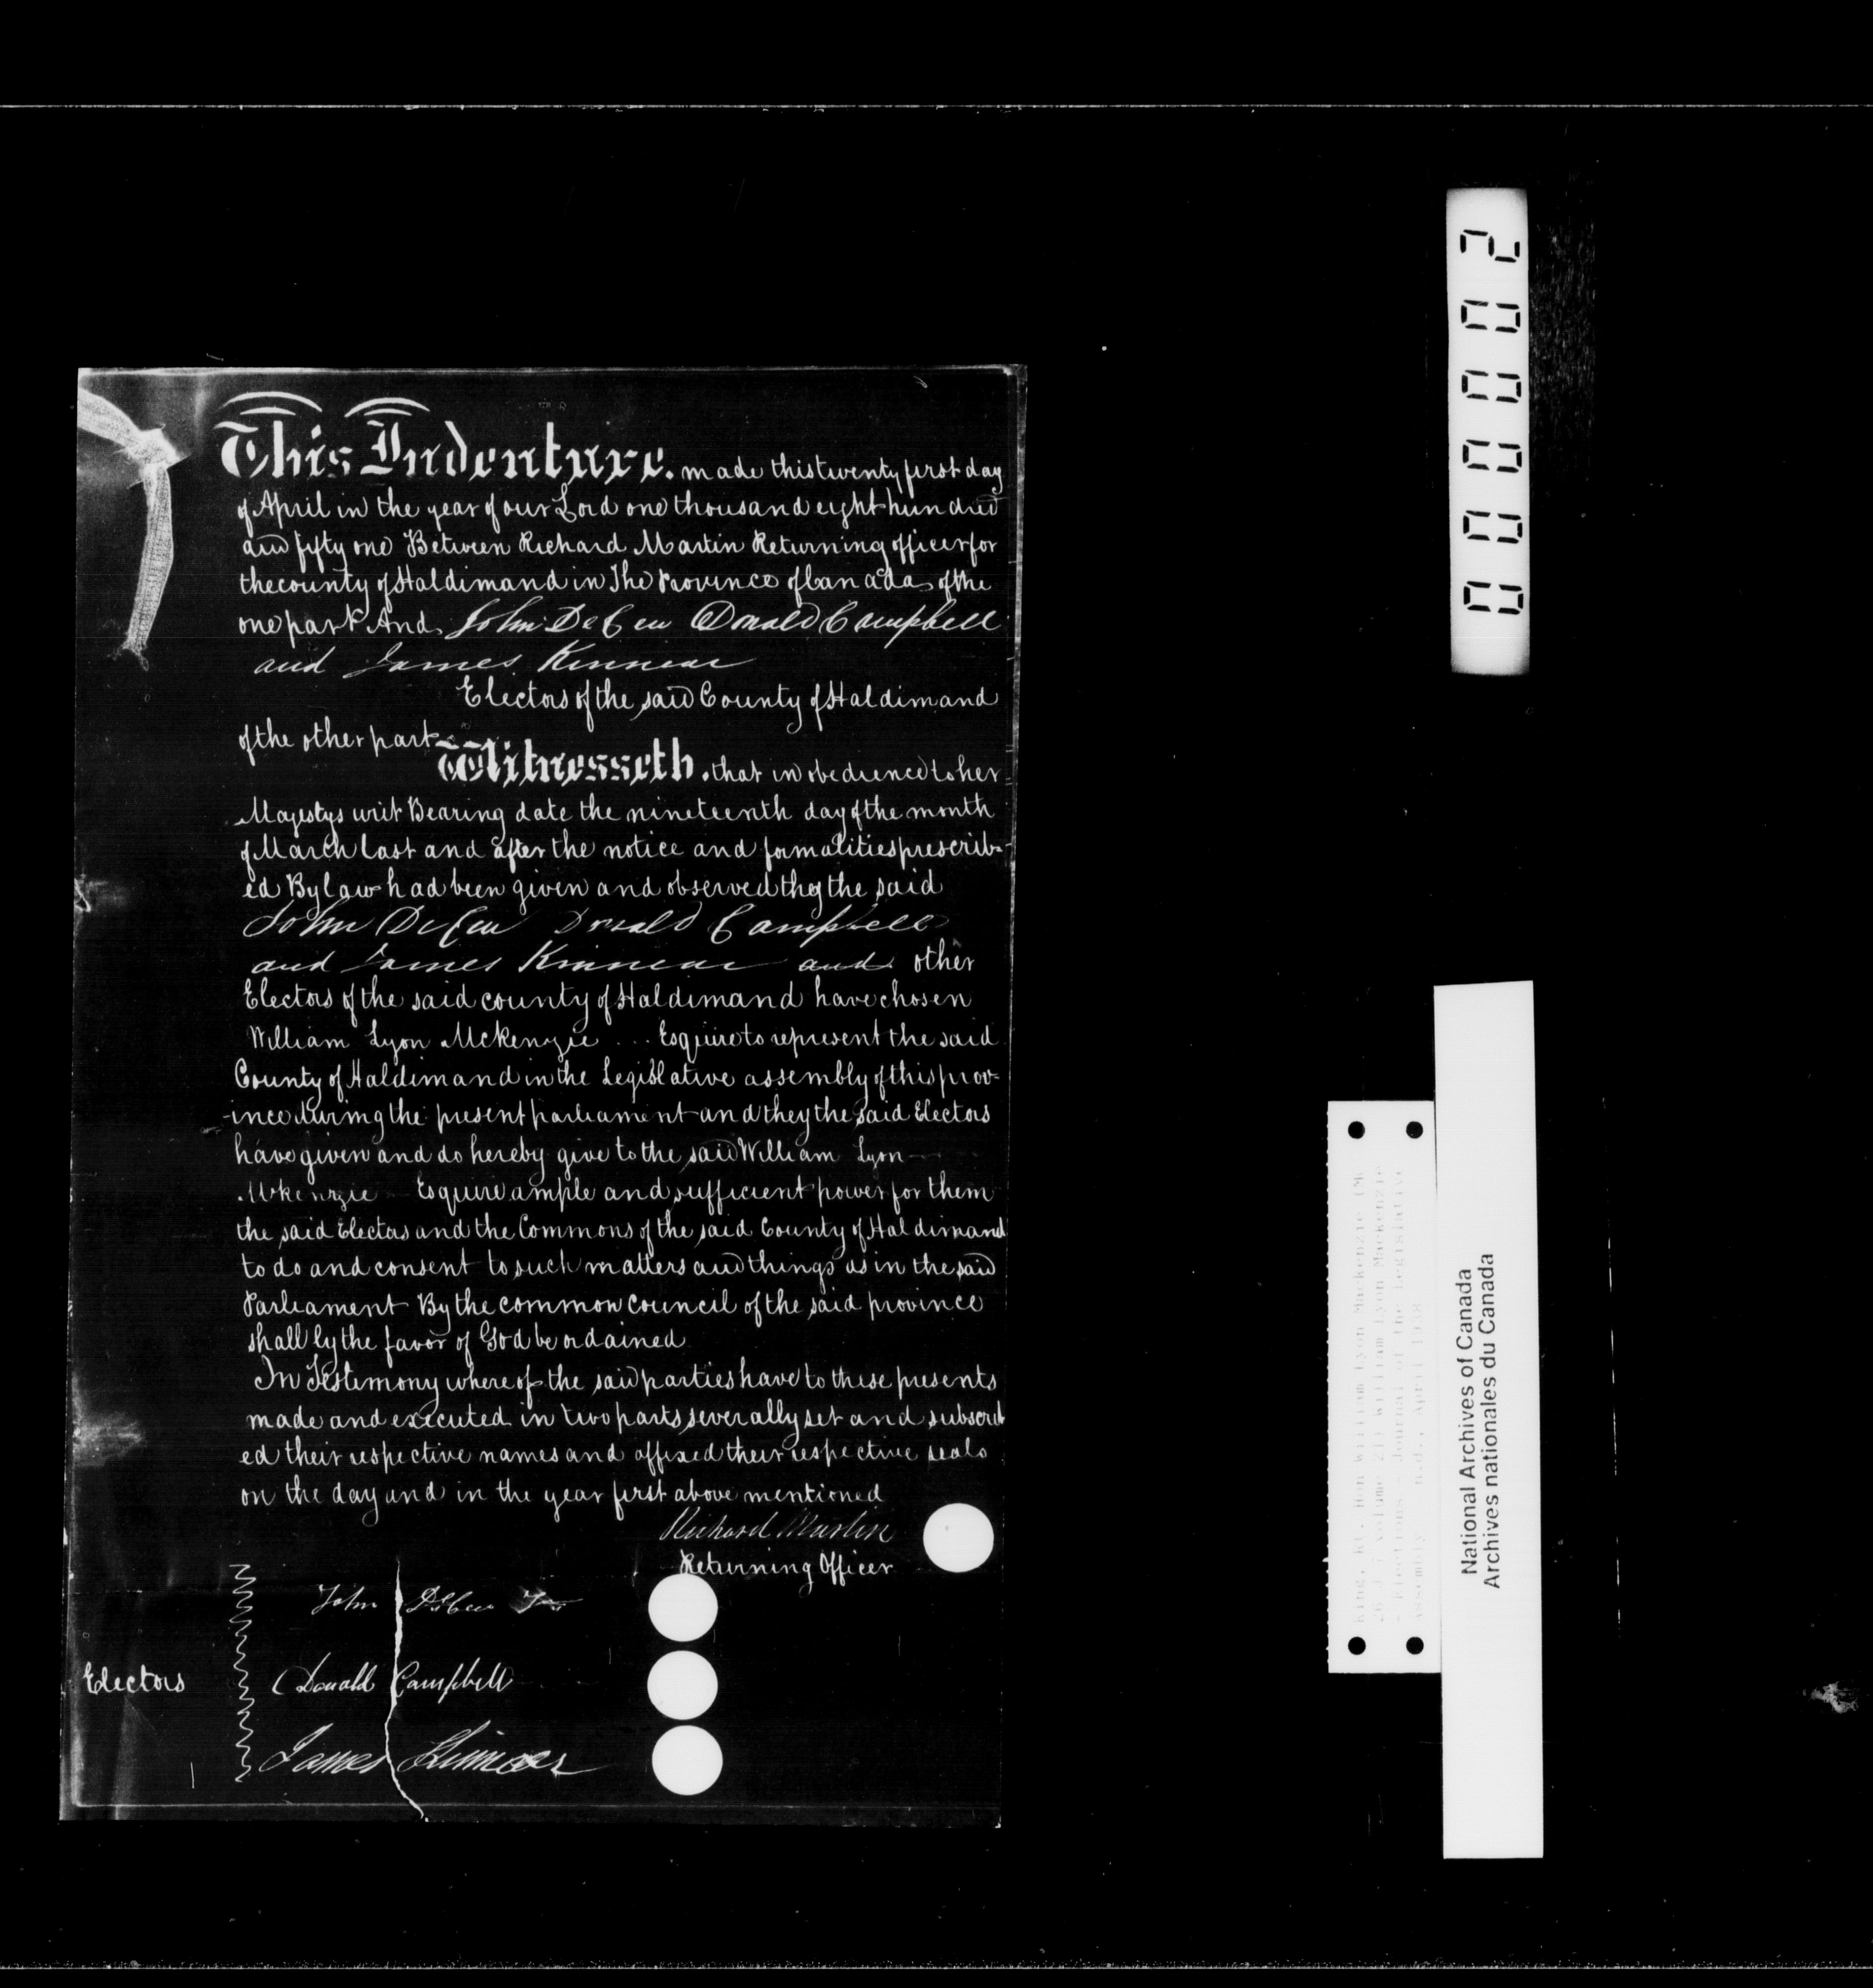 This Indenture. made this twenty first day
of April in the year of our Lord one thousand eight hundred
and fifty one Between Richard Martin Returning officer for
the county of Haldimand in The Province of Canada of the
one part And John DeCew Donald Campbell
and James Kinnear
Electors of the said County of Haldimand
of the other part
Witnesseth. that in obedience to her
Majestys writ Bearing date the nineteenth day of the month
of March last and after the notice and formalities prescrib-
ed By law had been given and observed they the said
John DeCew Donald Campbell
and James Kinnear and other
Electors of the said county of Haldimand have chosen
William Lyon McKenzie ... Esquire to represent the said
County of Haldimand in the Legislative assembly of this prov-
-ince during the present parliament and they the said Electors
have given and do hereby give to the said William Lyon
McKenzie Esquire ample and sufficient power for them
the said Electors and the Commons of the said County of Haldimand
to do and consent to such matters and things as in the said
Parliament By the common council of the said province
shall by the favor of God be ordained
In Testimony where of the said parties have to these presents
made and executed in two parts severally set and subscrib
ed their respective names and affixed their respective seals
on the day and in the year first above mentioned
Richard Martin
Returning Officer
John DeCew
Electors
Donald Campbell
James Kinnear
000002
King, Rt. Hon William Lyon Mackenzie (M
26 J 7 Volume 21) William Lyon Mackenzie
- Elections - Journal of the Legislative
Assembly n.d., April 1938
National Archives of Canada
Archives nationales du Canada